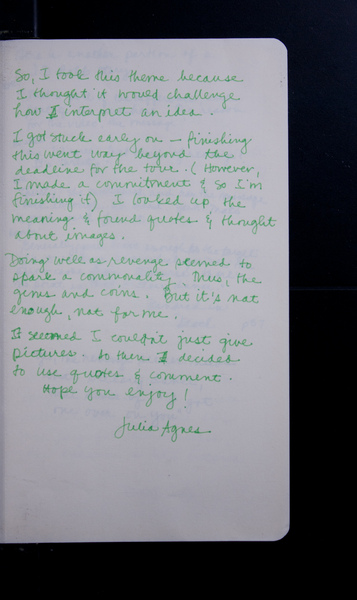 So, I took this theme because
I thought it would challenge
how I interpret an idea.
I got stuck early on — finishing
this went way beyond the
deadline for the tour. (However,
I made a commitment & so I'm
finishing it). I looked up the
meaning & found quotes & thought
about images.
Doing well as revenge seemed to
spark a commonality. Thus, the
gems and coins. But it's not
enough, not for me.
It seemed I couldn't just give
pictures. So then I decided
to use quotes & comment.
Hope you enjoy!
Julia Agnes